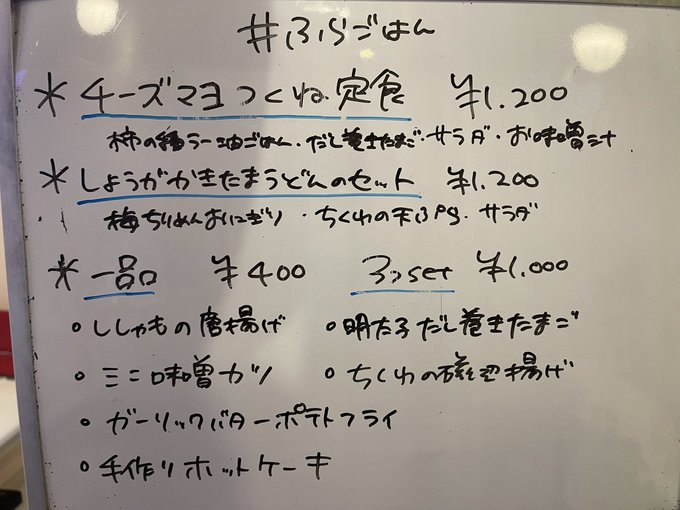 #ふらごはん
* チーズマヨつくね定食 ¥1.200
柿の種ラー油ごはん・だし巻きたまご・サラダ・お味噌汁
* しょうがかきたまうどんのセット ¥1.200
梅ちりめんおにぎり・ちくわの天ぷら・サラダ
* 一品 ¥400 3つset ¥1.000
・ししゃもの唐揚げ ・明太子だし巻きたまご
・ミニ味噌カツ ・ちくわの磯辺揚げ
・ガーリックバターポテトフライ
・手作りホットケーキ